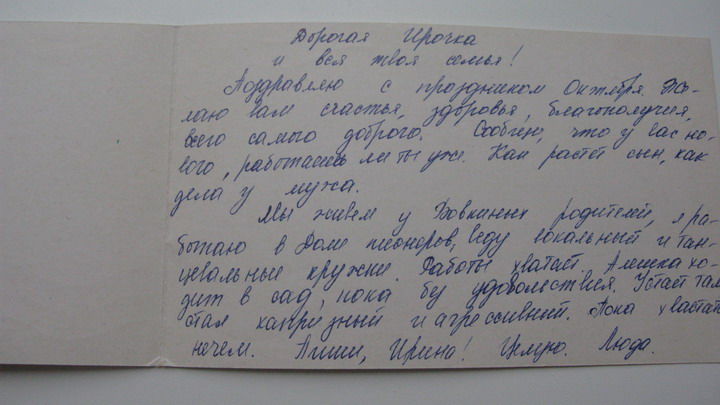 Дорогая Ирочка
и вся твоя семья!
Поздравляю с праздником Октября. Же-
лаю вам счастья, здоровья, благополучия,
всего самого доброго. Сообщи, что у вас но-
вого, работаешь ли ты уже. Как растёт сын, как
дела у мужа.
Мы живём у Вовкиных родителей, я ра-
ботаю в Доме пионеров, веду вокальный и тан-
цевальные кружки. Работы хватает. Алёшка хо-
дит в сад, пока без удовольствия. Устаёт там
стал капризный и агрессивний. Пока хвастать
нечем. Пиши, Ирина! Целую. Люда.